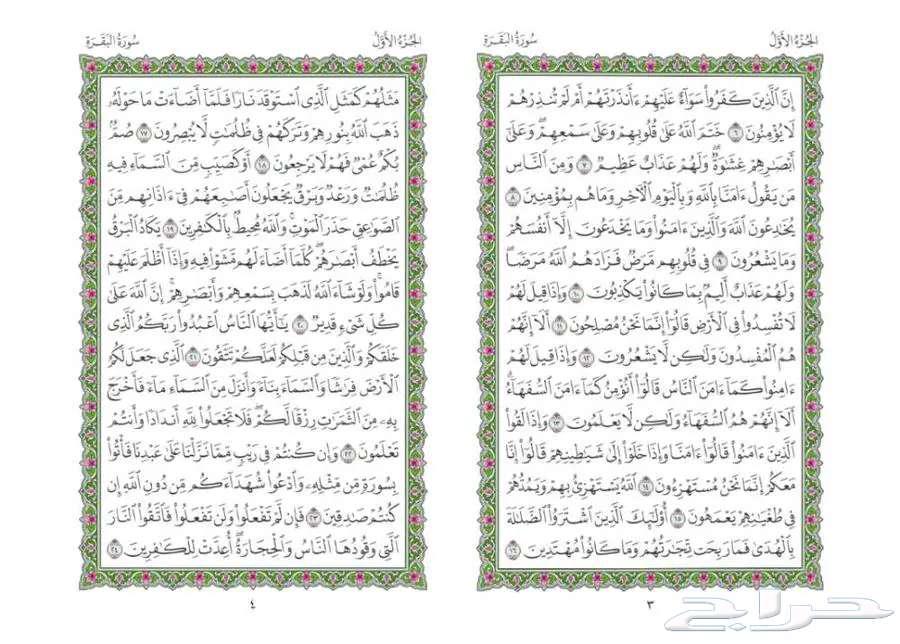 الجزء الأول
سورة البقرة
إِنَّ ٱلَّذِينَ كَفَرُوا۟ سَوَآءٌ عَلَيْهِمْ ءَأَنذَرْتَهُمْ أَمْ لَمْ تُنذِرْهُمْ
لَا يُؤْمِنُونَ ٦ خَتَمَ ٱللَّهُ عَلَىٰ قُلُوبِهِمْ وَعَلَىٰ سَمْعِهِمْ ۖ وَعَلَىٰٓ
أَبْصَٰرِهِمْ غِشَٰوَةٌ ۖ وَلَهُمْ عَذَابٌ عَظِيمٌ ٧ وَمِنَ ٱلنَّاسِ
مَن يَقُولُ ءَامَنَّا بِٱللَّهِ وَبِٱلْيَوْمِ ٱلْءَاخِرِ وَمَا هُم بِمُؤْمِنِينَ ٨
يُخَٰدِعُونَ ٱللَّهَ وَٱلَّذِينَ ءَامَنُوا۟ وَمَا يَخْدَعُونَ إِلَّآ أَنفُسَهُمْ
وَمَا يَشْعُرُونَ ٩ فِى قُلُوبِهِم مَّرَضٌ فَزَادَهُمُ ٱللَّهُ مَرَضًا ۖ
وَلَهُمْ عَذَابٌ أَلِيمٌۢ بِمَا كَانُوا۟ يَكْذِبُونَ ١٠ وَإِذَا قِيلَ لَهُمْ
لَا تُفْسِدُوا۟ فِى ٱلْأَرْضِ قَالُوٓا۟ إِنَّمَا نَحْنُ مُصْلِحُونَ ١١ أَلَآ إِنَّهُمْ
هُمُ ٱلْمُفْسِدُونَ وَلَٰكِن لَّا يَشْعُرُونَ ١٢ وَإِذَا قِيلَ لَهُمْ
ءَامِنُوا۟ كَمَآ ءَامَنَ ٱلنَّاسُ قَالُوٓا۟ أَنُؤْمِنُ كَمَآ ءَامَنَ ٱلسُّفَهَآءُ ۗ
أَلَآ إِنَّهُمْ هُمُ ٱلسُّفَهَآءُ وَلَٰكِن لَّا يَعْلَمُونَ ١٣ وَإِذَا لَقُوا۟
ٱلَّذِينَ ءَامَنُوا۟ قَالُوٓا۟ ءَامَنَّا وَإِذَا خَلَوْا۟ إِلَىٰ شَيَٰطِينِهِمْ قَالُوٓا۟ إِنَّا
مَعَكُمْ إِنَّمَا نَحْنُ مُسْتَهْزِءُونَ ١٤ ٱللَّهُ يَسْتَهْزِئُ بِهِمْ وَيَمُدُّهُمْ
فِى طُغْيَٰنِهِمْ يَعْمَهُونَ ١٥ أُو۟لَٰٓئِكَ ٱلَّذِينَ ٱشْتَرَوُا۟ ٱلضَّلَٰلَةَ
بِٱلْهُدَىٰ فَمَا رَبِحَت تِّجَٰرَتُهُمْ وَمَا كَانُوا۟ مُهْتَدِينَ ١٦
٣
الجزء الأول
سورة البقرة
مَثَلُهُمْ كَمَثَلِ ٱلَّذِى ٱسْتَوْقَدَ نَارًا فَلَمَّآ أَضَآءَتْ مَا حَوْلَهُۥ
ذَهَبَ ٱللَّهُ بِنُورِهِمْ وَتَرَكَهُمْ فِى ظُلُمَٰتٍ لَّا يُبْصِرُونَ ١٧ صُمٌّۢ
بُكْمٌ عُمْىٌ فَهُمْ لَا يَرْجِعُونَ ١٨ أَوْ كَصَيِّبٍ مِّنَ ٱلسَّمَآءِ فِيهِ
ظُلُمَٰتٌ وَرَعْدٌ وَبَرْقٌ يَجْعَلُونَ أَصَٰبِعَهُمْ فِىٓ ءَاذَانِهِم مِّنَ
ٱلصَّوَٰعِقِ حَذَرَ ٱلْمَوْتِ ۚ وَٱللَّهُ مُحِيطٌۢ بِٱلْكَٰفِرِينَ ١٩ يَكَادُ ٱلْبَرْقُ
يَخْطَفُ أَبْصَٰرَهُمْ ۖ كُلَّمَآ أَضَآءَ لَهُم مَّشَوْا۟ فِيهِ وَإِذَآ أَظْلَمَ عَلَيْهِمْ
قَامُوا۟ ۚ وَلَوْ شَآءَ ٱللَّهُ لَذَهَبَ بِسَمْعِهِمْ وَأَبْصَٰرِهِمْ ۚ إِنَّ ٱللَّهَ عَلَىٰ
كُلِّ شَىْءٍ قَدِيرٌ ٢٠ يَٰٓأَيُّهَا ٱلنَّاسُ ٱعْبُدُوا۟ رَبَّكُمُ ٱلَّذِى
خَلَقَكُمْ وَٱلَّذِينَ مِن قَبْلِكُمْ لَعَلَّكُمْ تَتَّقُونَ ٢١ ٱلَّذِى جَعَلَ لَكُمُ
ٱلْأَرْضَ فِرَٰشًا وَٱلسَّمَآءَ بِنَآءً وَأَنزَلَ مِنَ ٱلسَّمَآءِ مَآءً فَأَخْرَجَ
بِهِۦ مِنَ ٱلثَّمَرَٰتِ رِزْقًا لَّكُمْ ۖ فَلَا تَجْعَلُوا۟ لِلَّهِ أَندَادًا وَأَنتُمْ
تَعْلَمُونَ ٢٢ وَإِن كُنتُمْ فِى رَيْبٍ مِّمَّا نَزَّلْنَا عَلَىٰ عَبْدِنَا فَأْتُوا۟
بِسُورَةٍ مِّن مِّثْلِهِۦ وَٱدْعُوا۟ شُهَدَآءَكُم مِّن دُونِ ٱللَّهِ إِن
كُنتُمْ صَٰدِقِينَ ٢٣ فَإِن لَّمْ تَفْعَلُوا۟ وَلَن تَفْعَلُوا۟ فَٱتَّقُوا۟ ٱلنَّارَ
ٱلَّتِى وَقُودُهَا ٱلنَّاسُ وَٱلْحِجَارَةُ ۖ أُعِدَّتْ لِلْكَٰفِرِينَ ٢٤
٤
حراج